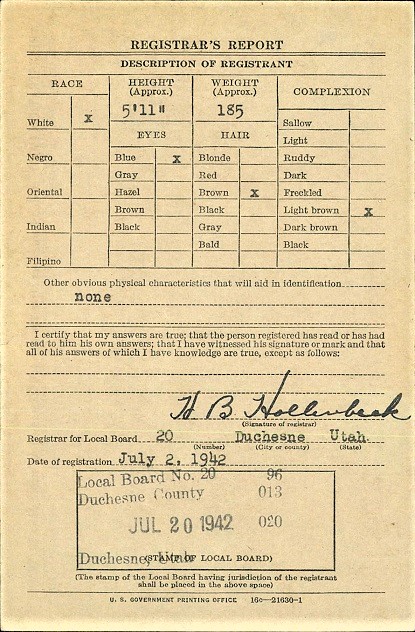 REGISTRAR'S REPORT
DESCRIPTION OF REGISTRANT
RACE
HEIGHT
(Approx.)
WEIGHT
(Approx.)
COMPLEXION
5'11"
185
White x
EYES
HAIR
Sallow
Light
Negro
Blue x
Blonde
Ruddy
Gray
Red
Dark
Oriental
Hazel
Brown x
Freckled
Brown
Black
Light brown x
Indian
Black
Gray
Dark brown
Bald
Black
Filipino
Other obvious physical characteristics that will aid in identification
none
I certify that my answers are true; that the person registered has read or has had
read to him his own answers; that I have witnessed his signature or mark and that
all of his answers of which I have knowledge are true, except as follows:
H B Hollenbeck
(Signature of registrar)
Registrar for Local Board 20 Duchesne Utah.
(Number) (City or county) (State)
Date of registration July 2, 1942
Local Board No. 20 96
Duchesne County 013
JUL 20 1942 020
Duchesne, Utah
(STAMP OF LOCAL BOARD)
(The stamp of the Local Board having jurisdiction of the registrant
shall be placed in the above space)
U. S. GOVERNMENT PRINTING OFFICE 16—21630-1